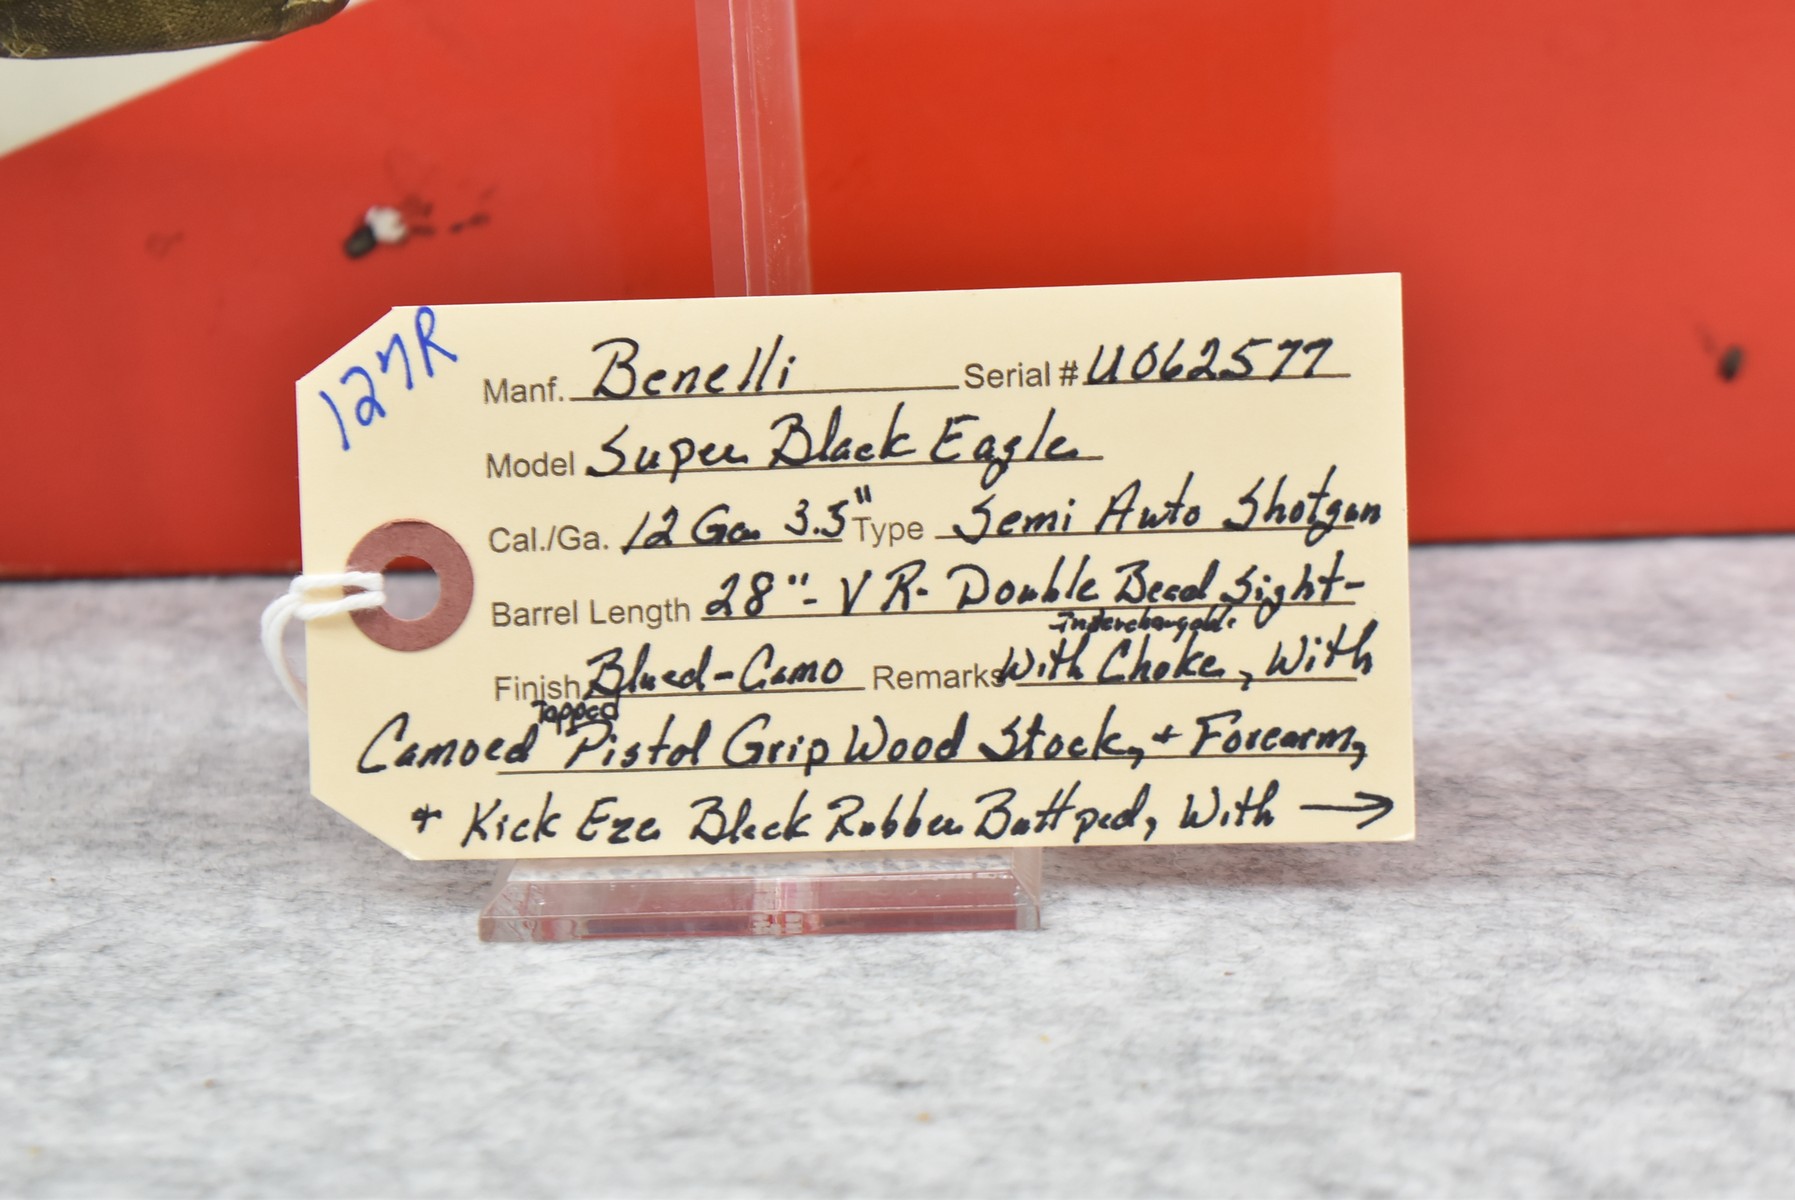 127R
Manf. Benelli Serial # U062577
Model Super Black Eagle
Cal./Ga. 12 Ga 3.5" Type Semi Auto Shotgun
Barrel Length 28"- VR- Double Bead Sight-
Interchangable
Finish Blued-Camo Remarks With Choke, With
Tapped
Camoed Pistol Grip Wood Stock, + Forearm,
+ Kick Eze Black Rubber Buttpad, With →